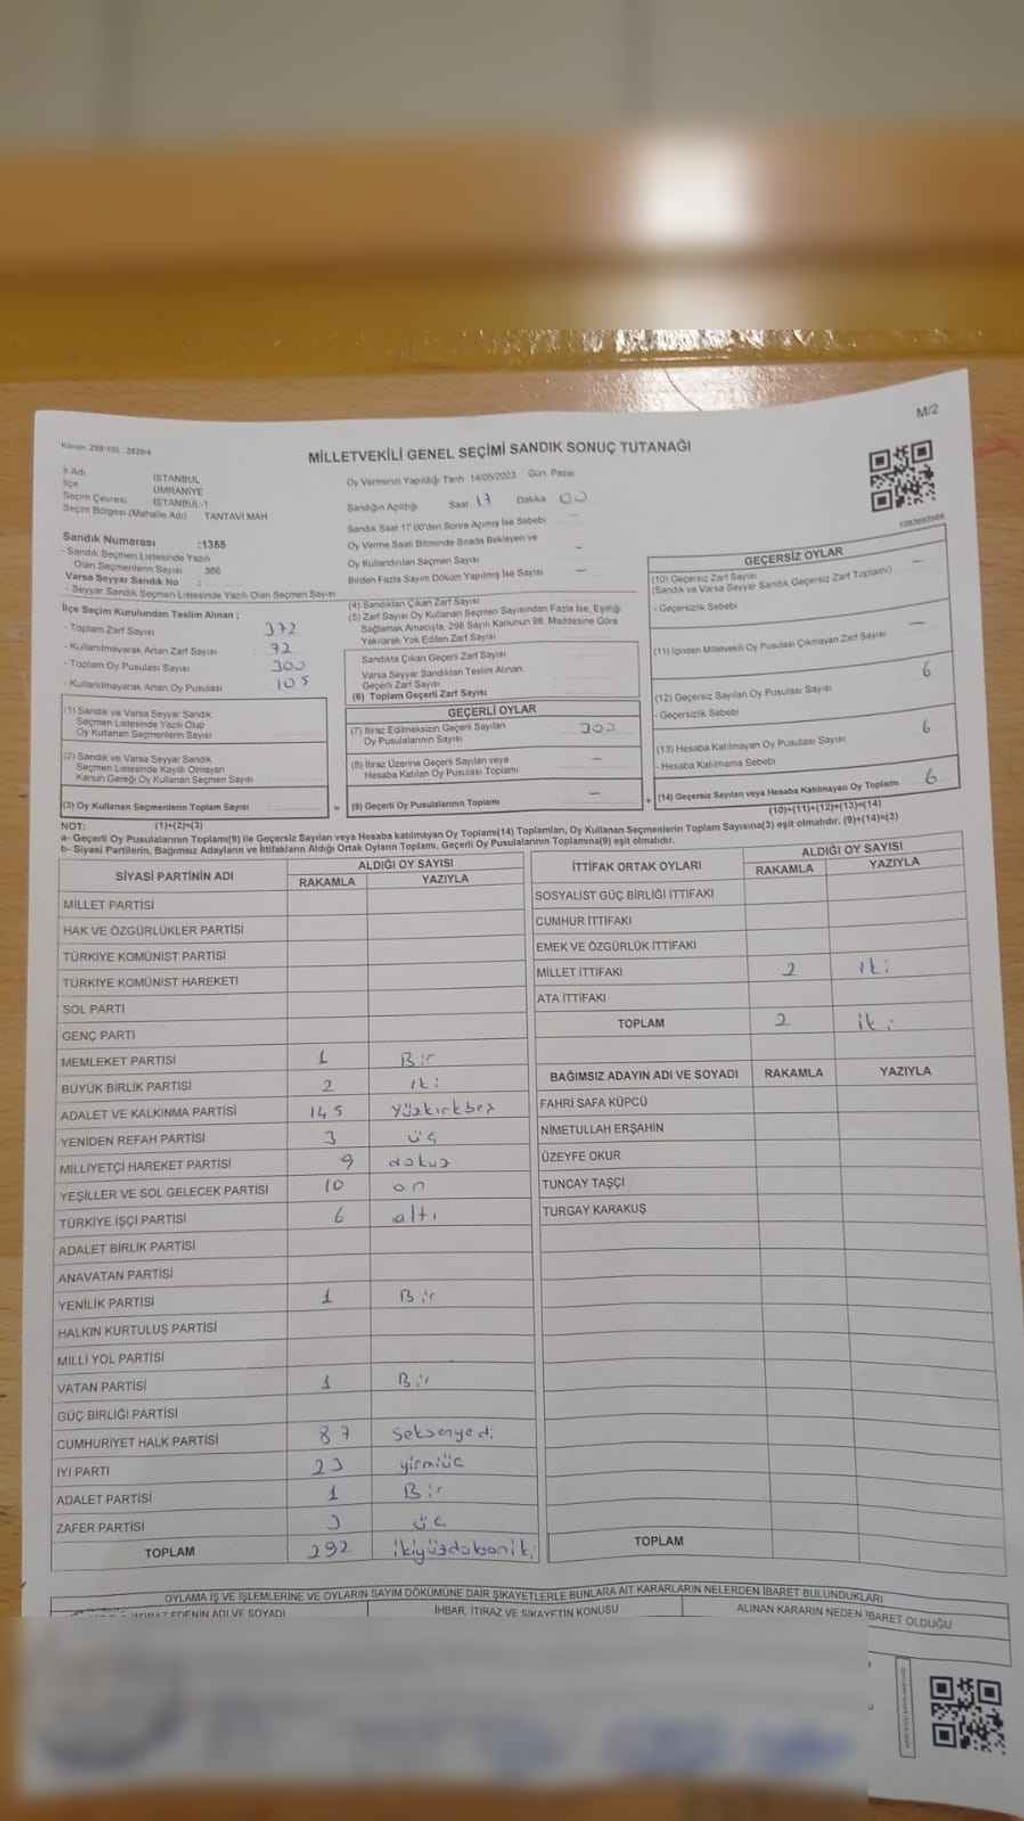 M/2
MİLLETVEKİLİ GENEL SEÇİMİ SANDIK SONUÇ TUTANAĞI
İl Adı İSTANBUL
İlçe ÜMRANİYE
Seçim Çevresi İSTANBUL-1
Seçim Bölgesi (Mahalle Adı) TANTAVİ MAH
Sandık Numarası :1365
- Sandık Seçmen Listesinde Yazılı
Olan Seçmenlerin Sayısı
Varsa Seyyar Sandık No :
- Seyyar Sandık Seçmen Listesinde Yazılı Olan Seçmen Sayısı
İlçe Seçim Kurulundan Teslim Alınan ;
- Toplam Zarf Sayısı 372
- Kullanılmayarak Artan Zarf Sayısı 72
- Toplam Oy Pusulası Sayısı 300
- Kullanılmayarak Artan Oy Pusulası 105
(1) Sandık ve Varsa Seyyar Sandık
Seçmen Listesinde Yazılı Olup
Oy Kullanan Seçmenlerin Sayısı
(2) Sandık ve Varsa Seyyar Sandık
Seçmen Listesinde Kayıtlı Olmayan
Kanun Gereği Oy Kullanan Seçmen Sayısı
(3) Oy Kullanan Seçmenlerin Toplam Sayısı
(1)+(2)=(3)
Oy Vermenin Yapıldığı Tarih 14/05/2023 Gün Pazar
Sandığın Açıldığı Saat 17 Dakika 00
Sandık Saat 17.00'den Sonra Açılmış İse Sebebi
Oy Verme Saati Bitiminde Sırada Bekleyen ve
Oy Kullandırılan Seçmen Sayısı -
Birden Fazla Sayım Döküm Yapılmış İse Sayısı -
(4) Sandıktan Çıkan Zarf Sayısı
(5) Zarf Sayısı Oy Kullanan Seçmen Sayısından Fazla İse, Eşitliği
Sağlamak Amacıyla, 298 Sayılı Kanunun 98. Maddesine Göre
Yakılarak Yok Edilen Zarf Sayısı
Sandıkta Çıkan Geçerli Zarf Sayısı
Varsa Seyyar Sandıktan Teslim Alınan
Geçerli Zarf Sayısı
(6) Toplam Geçerli Zarf Sayısı
GEÇERLİ OYLAR
(7) İtiraz Edilmeksizin Geçerli Sayılan
Oy Pusulalarının Sayısı 300
(8) İtiraz Üzerine Geçerli Sayılan veya
Hesaba Katılan Oy Pusulası Toplamı -
= (9) Geçerli Oy Pusulalarının Toplamı -
GEÇERSİZ OYLAR
(10) Geçersiz Zarf Sayısı -
(Sandık ve Varsa Seyyar Sandık Geçersiz Zarf Toplamı)
- Geçersizlik Sebebi
(11) İçinden Milletvekili Oy Pusulası Çıkmayan Zarf Sayısı -
(12) Geçersiz Sayılan Oy Pusulası Sayısı 6
- Geçersizlik Sebebi
(13) Hesaba Katılmayan Oy Pusulası Sayısı 6
- Hesaba Katılmama Sebebi
+ (14) Geçersiz Sayılan veya Hesaba Katılmayan Oy Toplamı 6
(10)+(11)+(12)+(13)=(14)
NOT:
a- Geçerli Oy Pusulalarının Toplamı(9) ile Geçersiz Sayılan veya Hesaba katılmayan Oy Toplamı(14) Toplamları, Oy Kullanan Seçmenlerin Toplam Sayısına(3) eşit olmalıdır. (9)+(14)=(3)
b- Siyasi Partilerin, Bağımsız Adayların ve İttifakların Aldığı Ortak Oyların Toplamı, Geçerli Oy Pusulalarının Toplamına(9) eşit olmalıdır.
SİYASİ PARTİNİN ADI ALDIĞI OY SAYISI
RAKAMLA YAZIYLA
MİLLET PARTİSİ
HAK VE ÖZGÜRLÜKLER PARTİSİ
TÜRKİYE KOMÜNİST PARTİSİ
TÜRKİYE KOMÜNİST HAREKETİ
SOL PARTİ
GENÇ PARTİ
MEMLEKET PARTİSİ 1 Bir
BÜYÜK BİRLİK PARTİSİ 2 iki
ADALET VE KALKINMA PARTİSİ 145 yüzkırkbeş
YENİDEN REFAH PARTİSİ 3 üç
MİLLİYETÇİ HAREKET PARTİSİ 9 dokuz
YEŞİLLER VE SOL GELECEK PARTİSİ 10 on
TÜRKİYE İŞÇİ PARTİSİ 6 altı
ADALET BİRLİK PARTİSİ
ANAVATAN PARTİSİ
YENİLİK PARTİSİ 1 Bir
HALKIN KURTULUŞ PARTİSİ
MİLLİ YOL PARTİSİ
VATAN PARTİSİ 1 Bir
GÜÇ BİRLİĞİ PARTİSİ
CUMHURİYET HALK PARTİSİ 87 seksenyedi
İYİ PARTİ 23 yirmiüç
ADALET PARTİSİ 1 Bir
ZAFER PARTİSİ 3 üç
TOPLAM 292 ikiyüzdoksaniki
İTTİFAK ORTAK OYLARI ALDIĞI OY SAYISI
RAKAMLA YAZIYLA
SOSYALİST GÜÇ BİRLİĞİ İTTİFAKI
CUMHUR İTTİFAKI
EMEK VE ÖZGÜRLÜK İTTİFAKI
MİLLET İTTİFAKI 2 iki
ATA İTTİFAKI
TOPLAM 2 iki
BAĞIMSIZ ADAYIN ADI VE SOYADI RAKAMLA YAZIYLA
FAHRİ SAFA KÜPCÜ
NİMETULLAH ERŞAHİN
ÜZEYFE OKUR
TUNCAY TAŞÇI
TURGAY KARAKUŞ
TOPLAM
OYLAMA İŞ VE İŞLEMLERİNE VE OYLARIN SAYIM DÖKÜMÜNE DAİR ŞİKAYETLERLE BUNLARA AİT KARARLARIN NELERDEN İBARET BULUNDUKLARI
İTİRAZ EDENİN ADI VE SOYADI İHBAR, İTİRAZ VE ŞİKAYETİN KONUSU ALINAN KARARIN NEDEN İBARET OLDUĞU